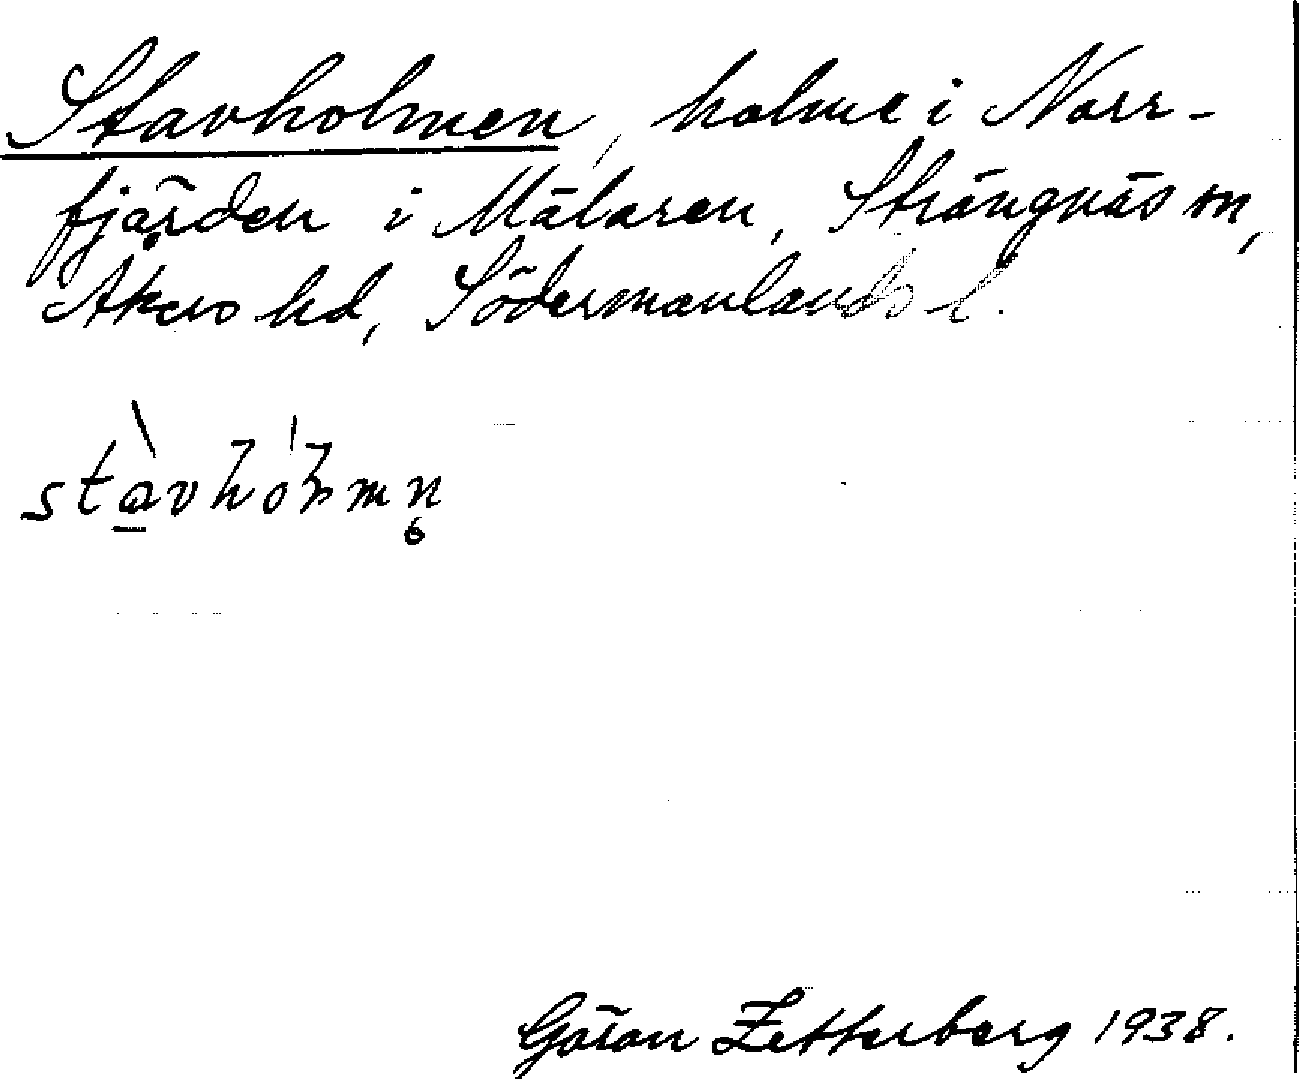 Stavholmen, holme i Norr-
fjärden i Mälaren, Strängnäs sn,
Åkers hd, Södermanlands l.
stàvhólmn̥
Göran Zetterberg 1938.